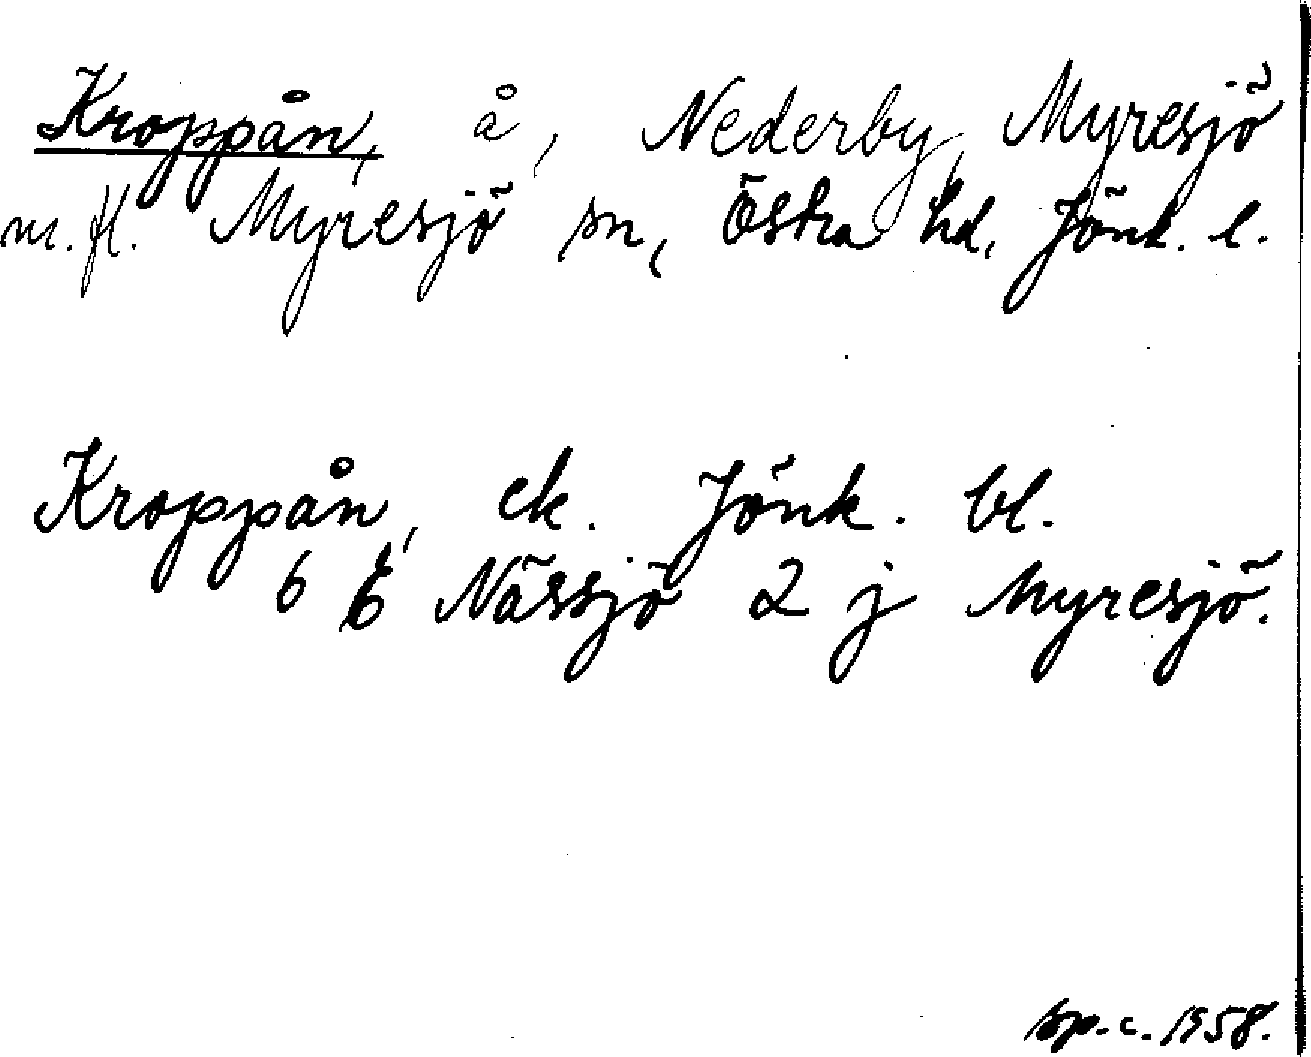 Kroppån, å, Nederby, Myresjö
m. fl. Myresjö sn, Östra hd, Jönk. l.
Kroppån, ek. Jönk. bl.
6 E Nässjö 2 j Myresjö.
sp. c. 1958.